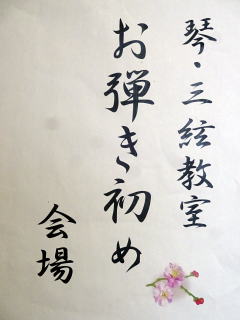 琴・三絃教室
お弾き初め
会場